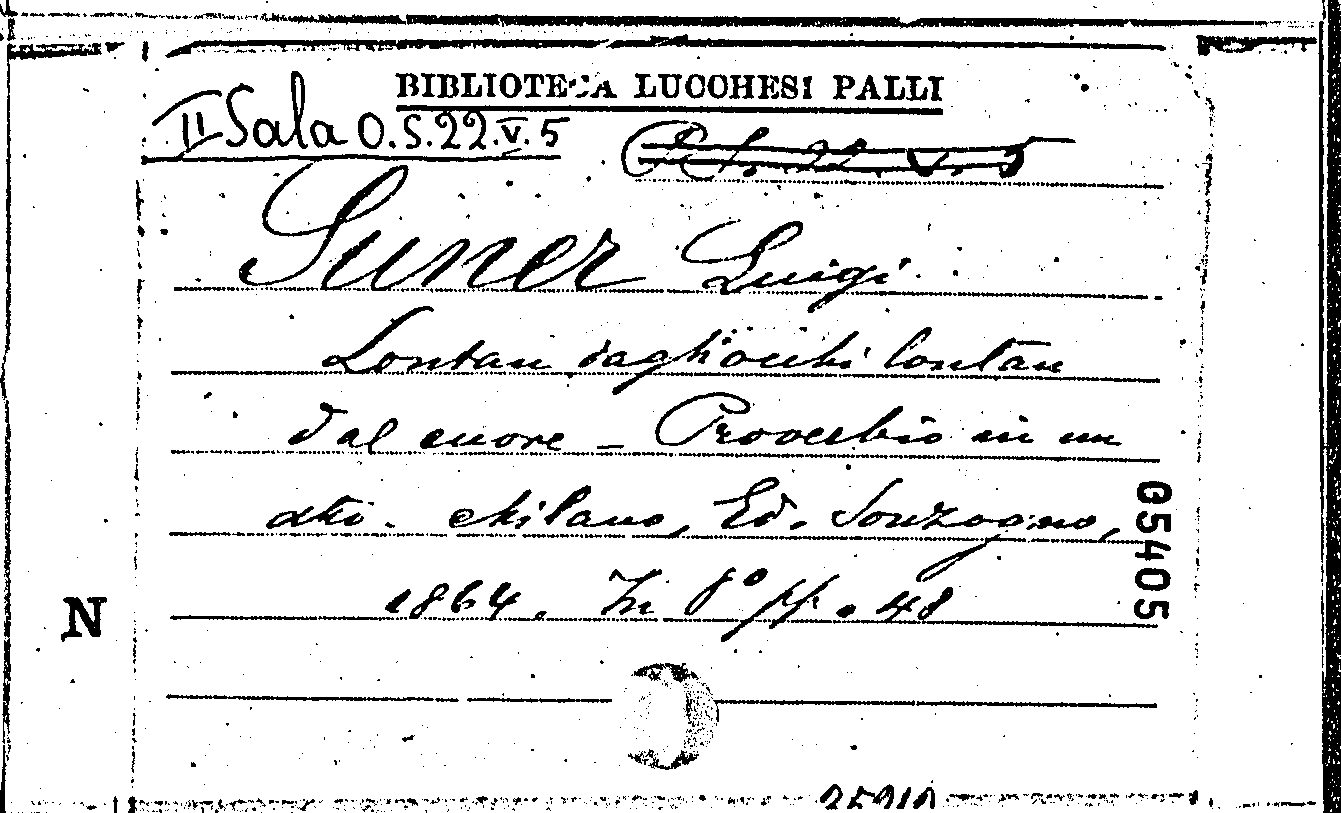 BIBLIOTECA LUCCHESI PALLI
II Sala O.S.22.V.5
Suner Luigi
Lontan dagli occhi lontan
dal cuore – Proverbio in un
atto. Milano, Ed. Sonzogno,
1864. In 8° pp. 48
G5405
N